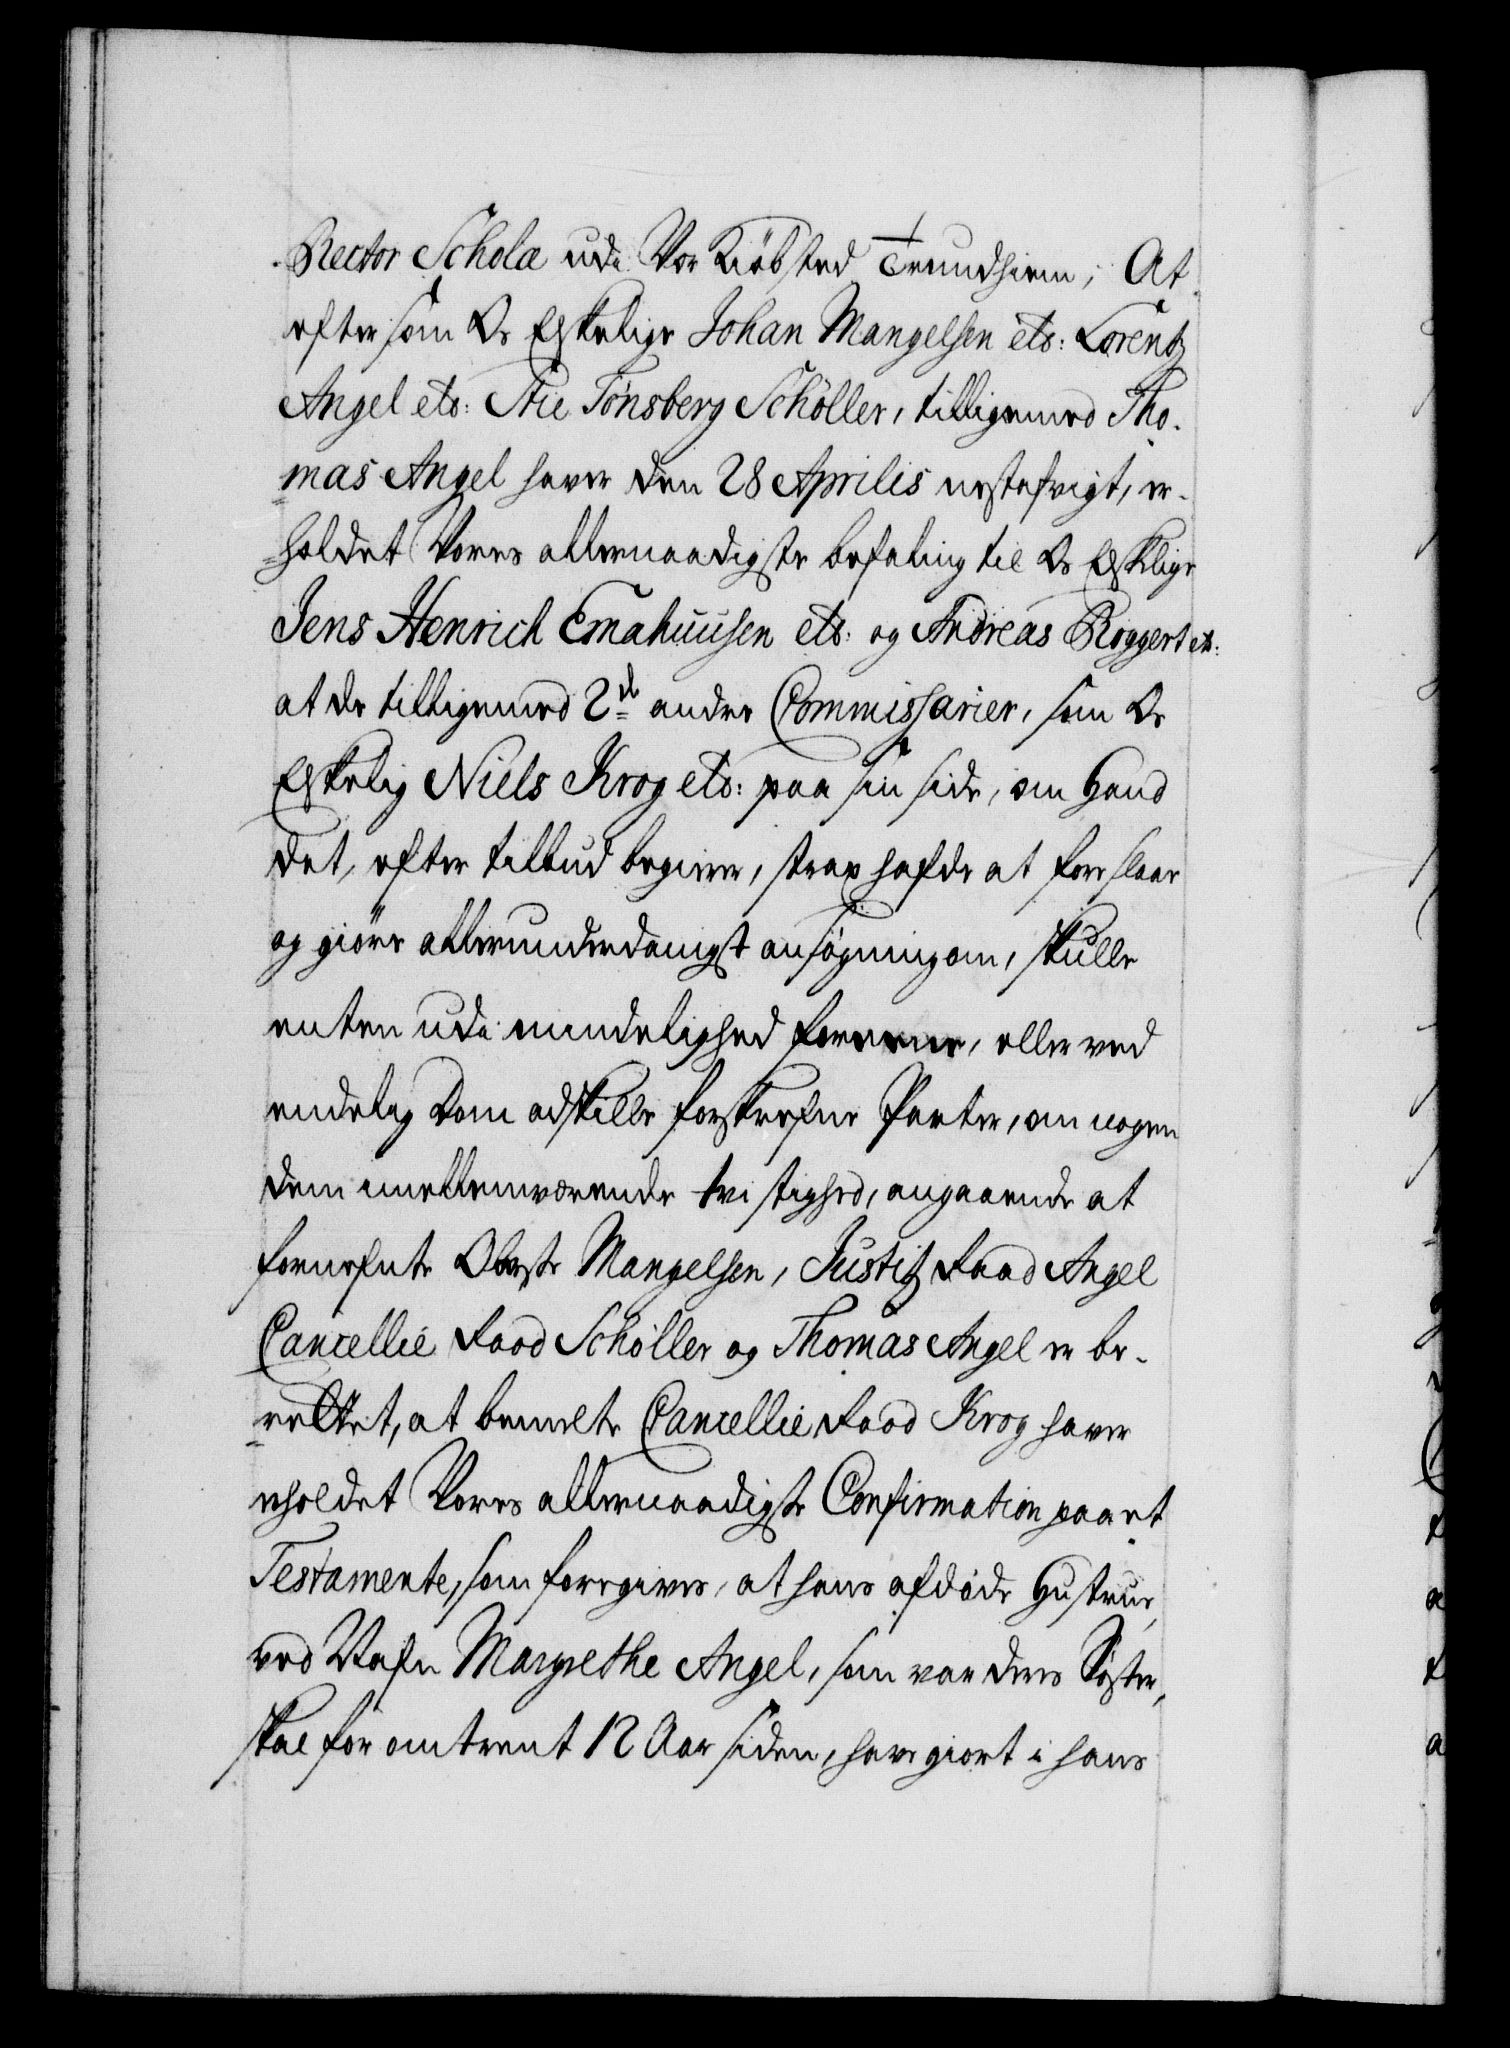 Rector Scholæ udi Vor Kiöbsted Trundhiem; At
efter som Os Elskelige Johan Mangelsen etc: Lorentz
Angel etc: Stie Tönsberg Schöller, tilligemed Tho-
mas Angel haver den 28 Aprilis nestafvigt, er-
holdet Vores allernaadigste befaling til Os Elsklige
Jens Henrich Emahuusen etc: og Andreas Roggert etc:
at de tilligemed 2de andre Commissarier, som Os
Elskelig Niels Krog etc: paa sin side, om Hand
det, efter tilbud begierer, strax hafde at foreslaae
og giöre allerunderdanigst ansøgning om, skulle
enten udi mindelighed foreene, eller ved
endelig Dom adskille forskrefne Parter, om nogen
dem imellemværende tvistighed, angaaende at
fornefnte Oberste Mangelsen, Justitz Raad Angel
Cancellie Raad Schöller og Thomas Angel er be-
rettet, at bemelte Cancellie Raad Krog haver
erholdet Vores allernaadigste Confirmation paa et
Testamente, som foregives, at hans afdöde Hustrue,
ved Nafn Margrethe Angel, som var deres Søster,
skal for omtrent 12 Aar siden, have giort i hans